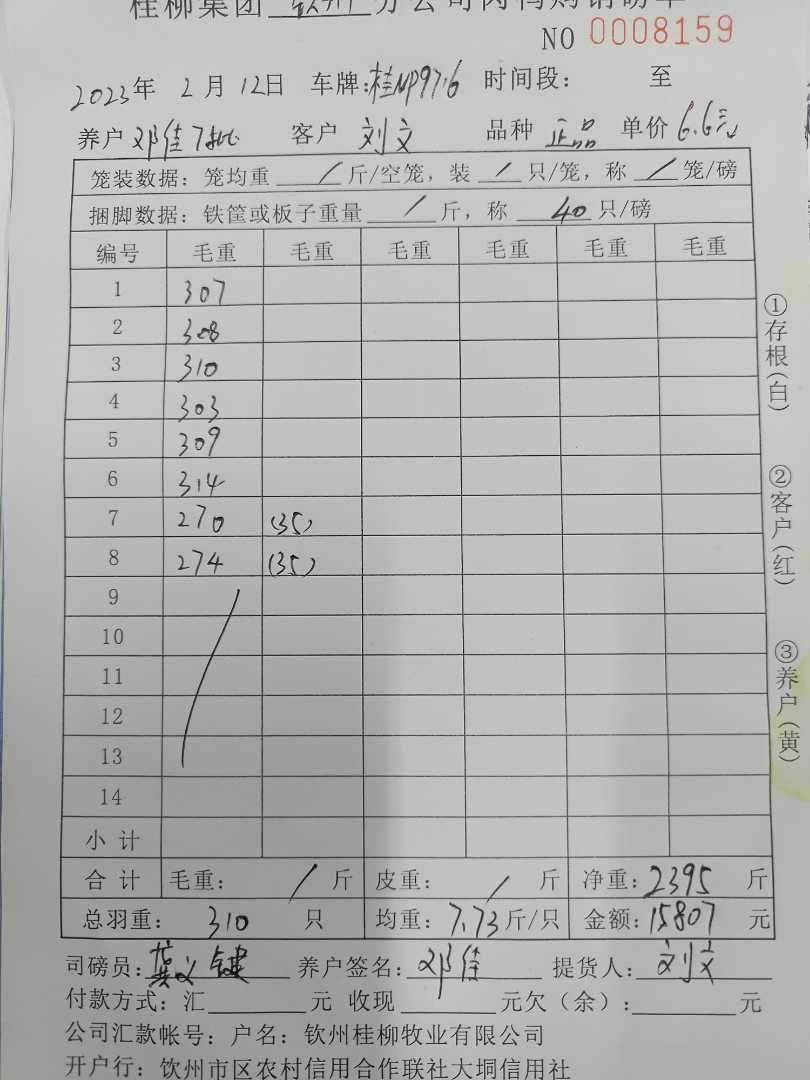 桂柳集团 钦州 分公司肉鸭购销磅单
NO 0008159
2023年 2月12日 车牌:桂NP9716 时间段: 至
养户 邓佳 客户 刘文 品种 正品 单价 6.6元
笼装数据: 笼均重 / 斤/空笼, 装 / 只/笼, 称 / 笼/磅
捆脚数据: 铁筐或板子重量 / 斤, 称 40 只/磅
编号 毛重 毛重 毛重 毛重 毛重 毛重
1 307
2 308
3 310
4 303
5 309
6 314
7 270 (35)
8 274 (35)
9
10
11
12
13
14
小计
合计 毛重: / 斤 皮重: / 斤 净重: 2395 斤
总羽重: 310 只 均重: 7.73 斤/只 金额: 15807 元
司磅员: 龚义键 养户签名: 邓佳 提货人: 刘文
付款方式: 汇 元 收现 元欠(余): 元
公司汇款帐号: 户名: 钦州桂柳牧业有限公司
开户行: 钦州市区农村信用合作联社大垌信用社
①存根(白)
②客户(红)
③养户(黄)